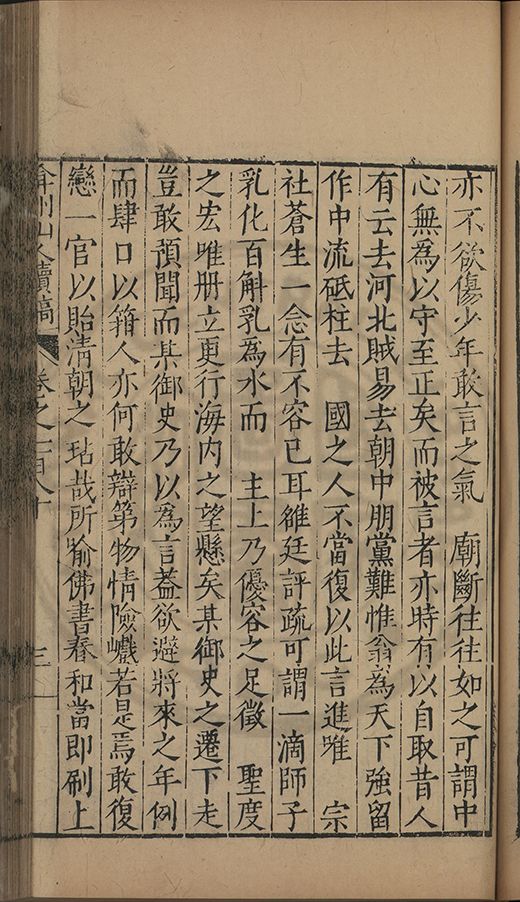 亦不欲傷少年敢言之氣　廟斷往往如之可謂中
心無為以守至正矣而被言者亦時有以自取昔人
有云去河北賊易去朝中朋黨難惟翁為天下強留
作中流砥柱去　國之人不當復以此言進唯　宗
社蒼生一念有不容已耳雒廷評疏可謂一滴師子
乳化百斛乳為水而　主上乃優容之足徵　聖度
之宏唯册立更行海内之望懸矣某御史之遷下走
豈敢預聞而某御史乃以為言葢欲避將來之年例
而肆口以箝人亦何敢辯第物情險巇若是焉敢復
戀一官以貽清朝之玷哉所喻佛書春和當即刷上
弇州山人續稿　卷之一百八十　三